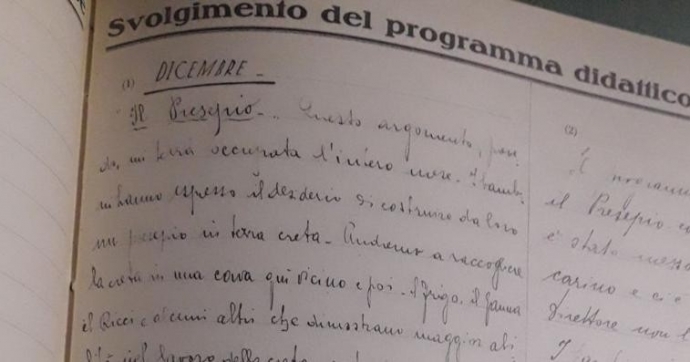 Svolgimento del programma didattico
(1) DICEMBRE -
Il Presepio. - Questo argomento, pen
so, mi terrà occupata l'intero mese. I bambi
ni hanno espresso il desiderio di costruire da loro
un presepio in terra creta - Andremo a raccogliere
la creta in una cava qui vicino e poi - il Frigo, il
il Ricci e alcuni altri che dimostrano maggior abi
lità nel lavoro della creta
(2)
Il
il Presepio
è stato messo
carino e ci è
Direttore non